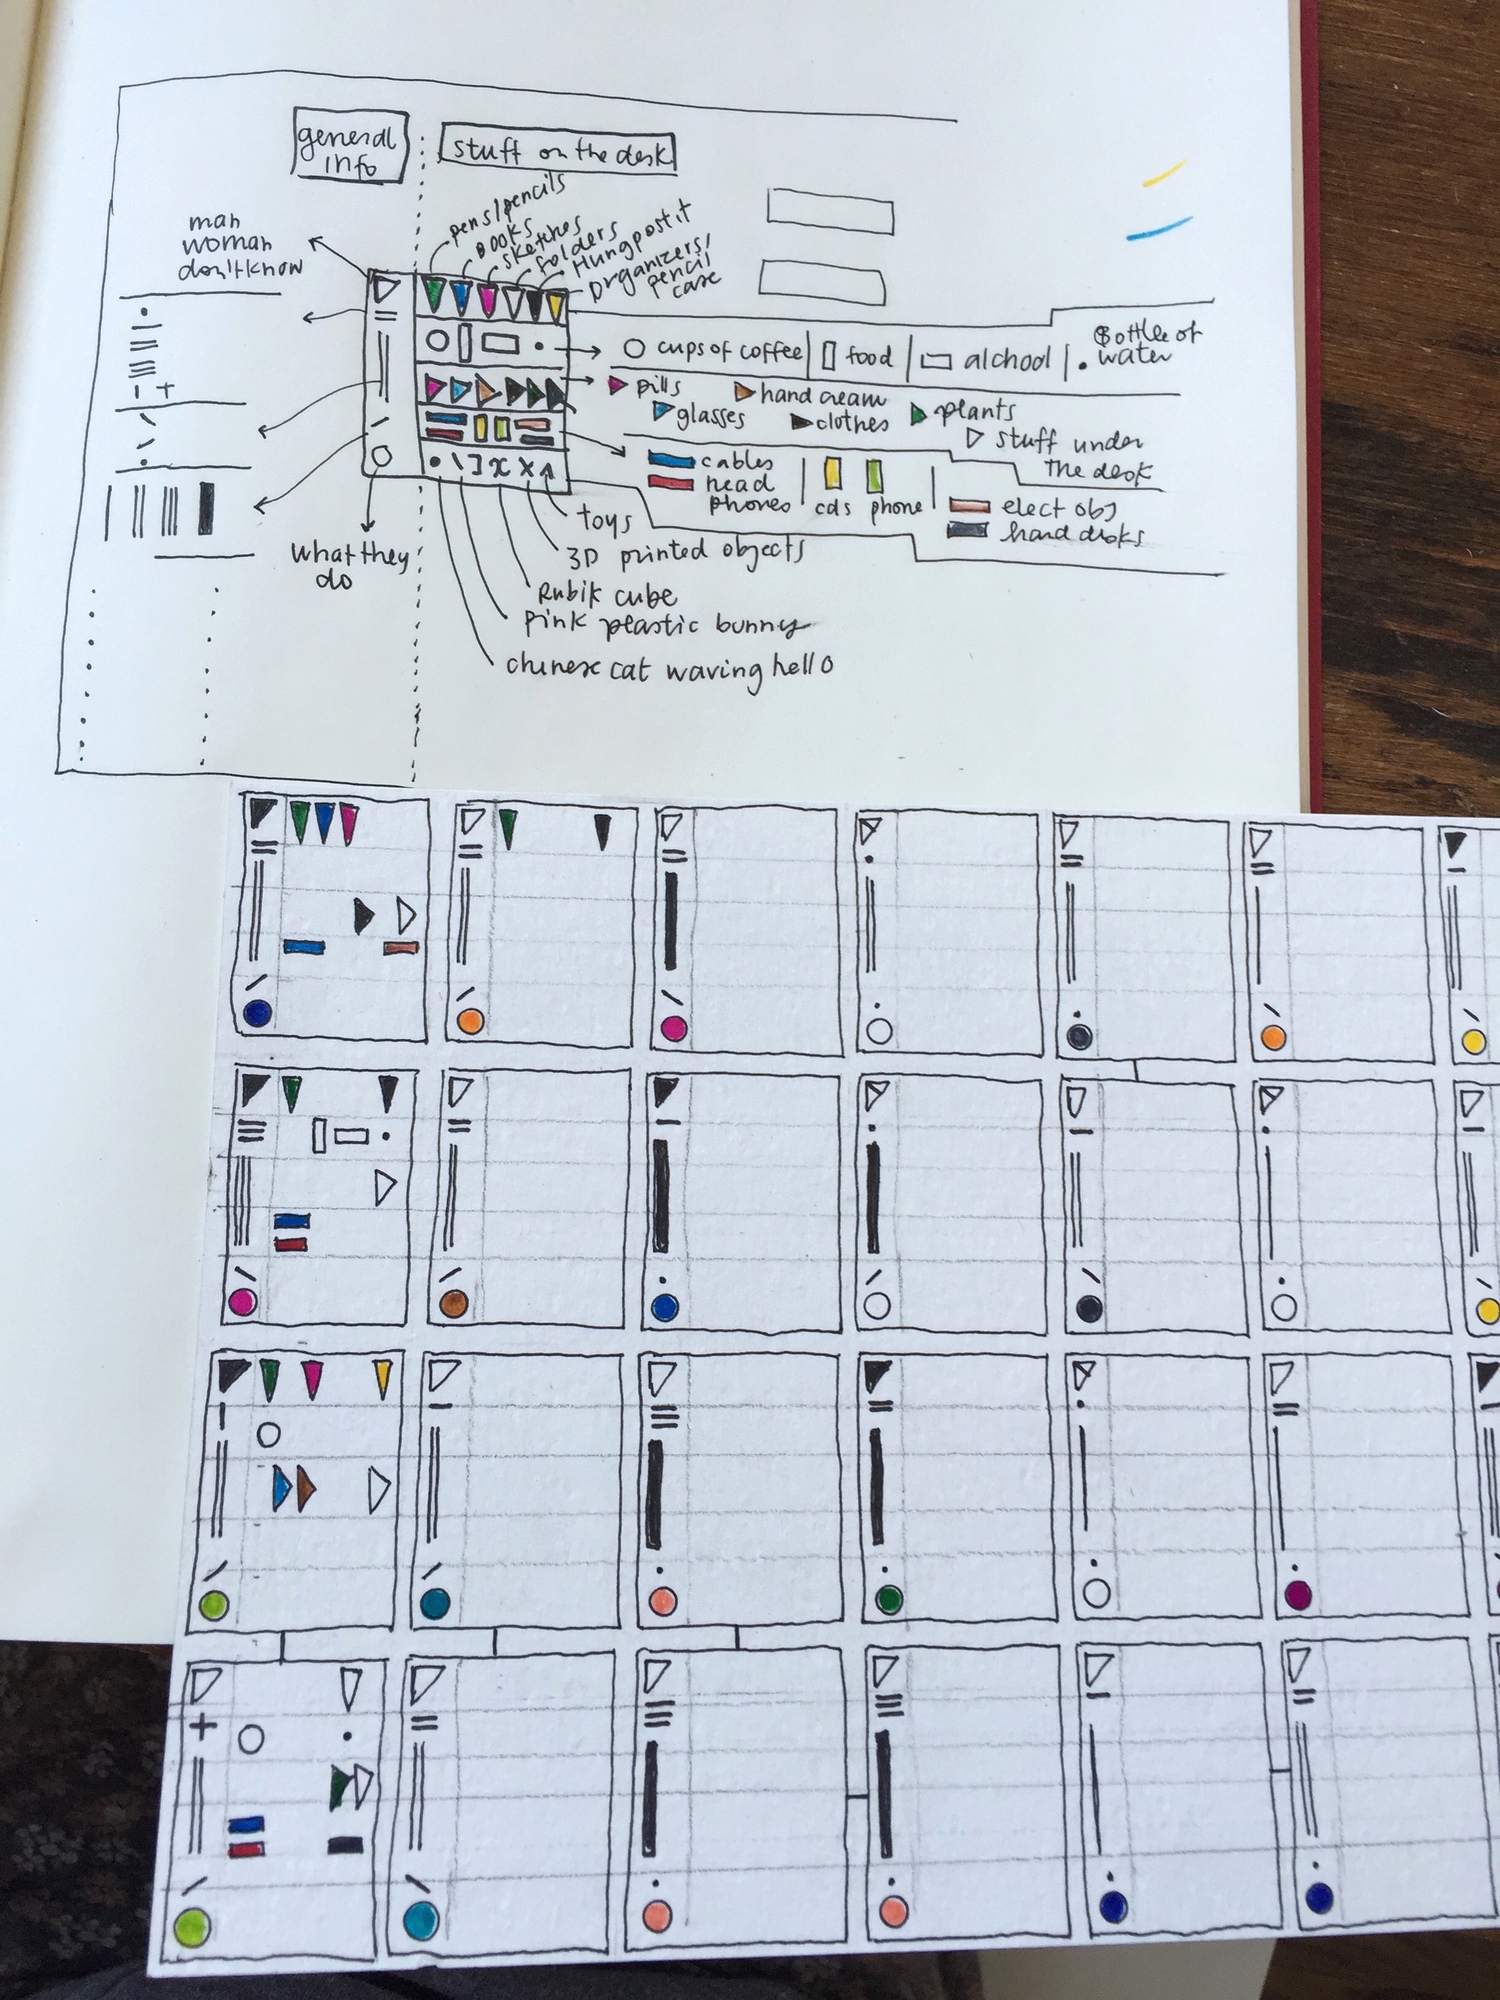 general
info
stuff on the desk
man
woman
don't know
pens/pencils
Books
sketches
folders
Hung post it
Organizers/
pencil
case
cups of coffee
food
alchool
Bottle of
water
pills
hand cream
glasses
clothes
plants
stuff under
the desk
cables
head
phones
cds
phone
elect obj
hard disks
toys
3D printed objects
Rubik cube
pink plastic bunny
chinese cat waving hello
what they
do